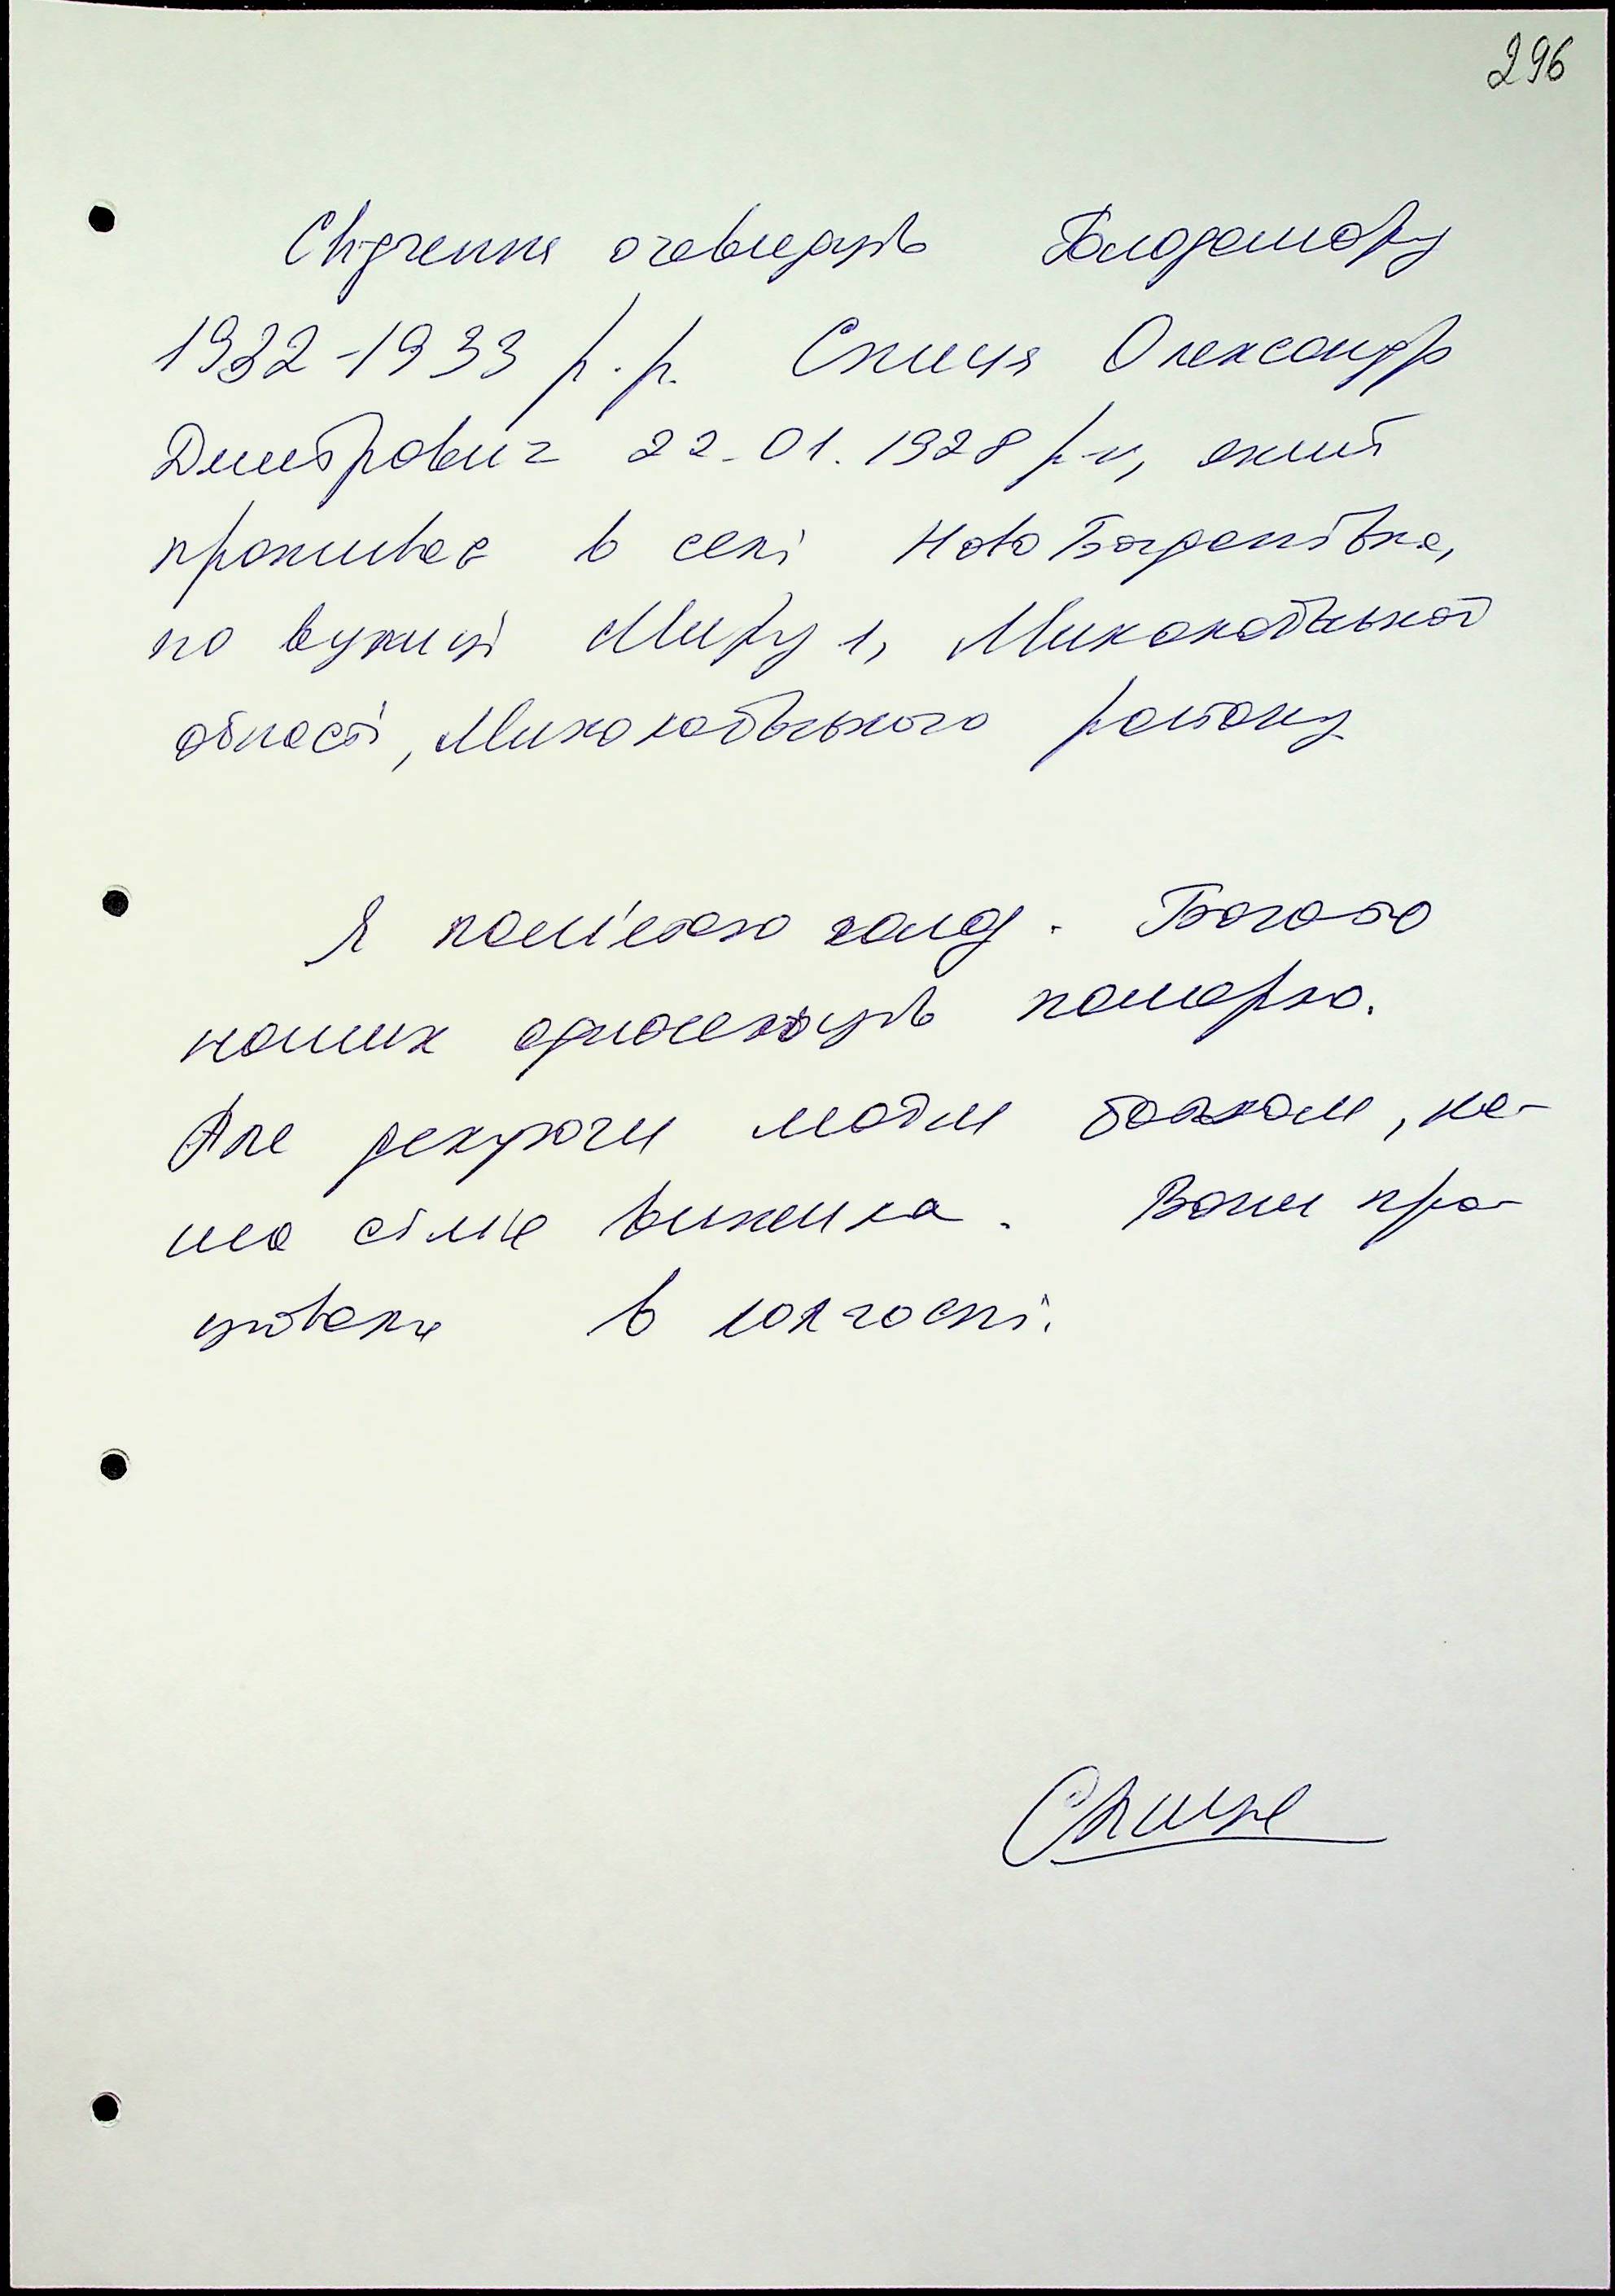 296
Свідчення очевидців Голодомору
1932-1933 р.р. Спиця Олександр
Дмитрович 22.01.1928 р-н, який
проживає в селі Ново Богданівка,
по вулиці Миру 1, Миколаївської
області, Миколаївського району
Я пам'ятаю голод. Багато
наших односельців померло.
Але дякуючи моїм батькам, на-
ша сім'я вижила. Вони пра-
цювали в колгоспі.
Спиця